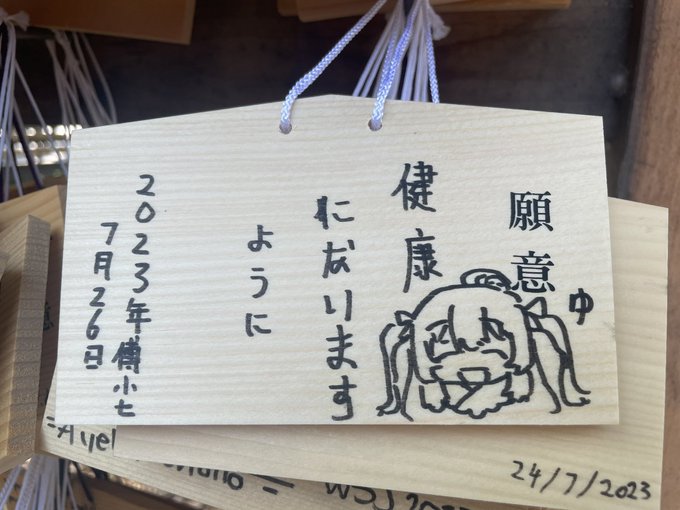 願意
健康
になります
ように
2023年 傅小七
7月26日
24/7/2023